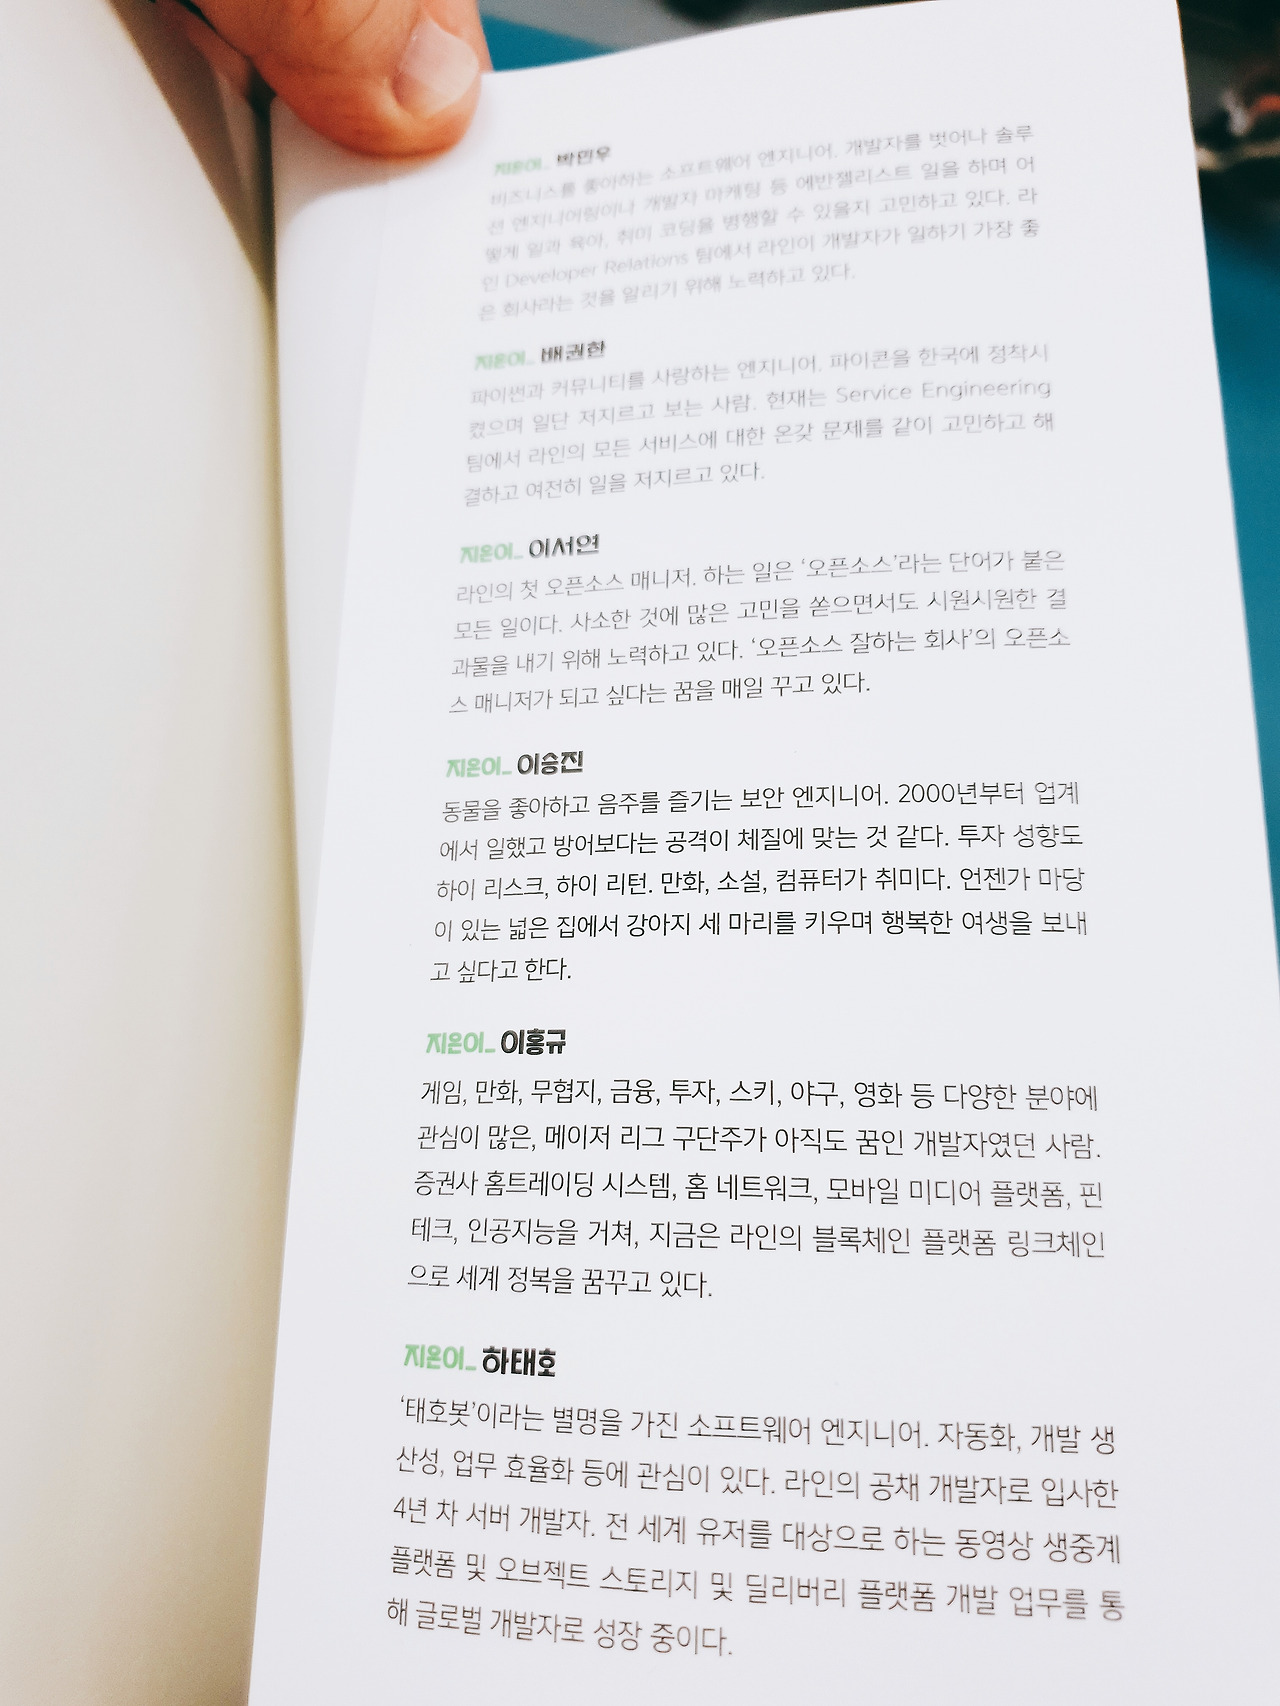 지은이_ 박민우
비즈니스를 좋아하는 소프트웨어 엔지니어. 개발자를 벗어나 솔루
션 엔지니어링이나 개발자 마케팅 등 에반젤리스트 일을 하며 어
떻게 일과 육아, 취미 코딩을 병행할 수 있을지 고민하고 있다. 라
인 Developer Relations 팀에서 라인이 개발자가 일하기 가장 좋
은 회사라는 것을 알리기 위해 노력하고 있다.
지은이_ 배권한
파이썬과 커뮤니티를 사랑하는 엔지니어. 파이콘을 한국에 정착시
켰으며 일단 저지르고 보는 사람. 현재는 Service Engineering
팀에서 라인의 모든 서비스에 대한 온갖 문제를 같이 고민하고 해
결하고 여전히 일을 저지르고 있다.
지은이_ 이서연
라인의 첫 오픈소스 매니저. 하는 일은 ‘오픈소스’라는 단어가 붙은
모든 일이다. 사소한 것에 많은 고민을 쏟으면서도 시원시원한 결
과물을 내기 위해 노력하고 있다. ‘오픈소스 잘하는 회사’의 오픈소
스 매니저가 되고 싶다는 꿈을 매일 꾸고 있다.
지은이_ 이승진
동물을 좋아하고 음주를 즐기는 보안 엔지니어. 2000년부터 업계
에서 일했고 방어보다는 공격이 체질에 맞는 것 같다. 투자 성향도
하이 리스크, 하이 리턴. 만화, 소설, 컴퓨터가 취미다. 언젠가 마당
이 있는 넓은 집에서 강아지 세 마리를 키우며 행복한 여생을 보내
고 싶다고 한다.
지은이_ 이홍규
게임, 만화, 무협지, 금융, 투자, 스키, 야구, 영화 등 다양한 분야에
관심이 많은, 메이저 리그 구단주가 아직도 꿈인 개발자였던 사람.
증권사 홈트레이딩 시스템, 홈 네트워크, 모바일 미디어 플랫폼, 핀
테크, 인공지능을 거쳐, 지금은 라인의 블록체인 플랫폼 링크체인
으로 세계 정복을 꿈꾸고 있다.
지은이_ 하태호
‘태호봇’이라는 별명을 가진 소프트웨어 엔지니어. 자동화, 개발 생
산성, 업무 효율화 등에 관심이 있다. 라인의 공채 개발자로 입사한
4년 차 서버 개발자. 전 세계 유저를 대상으로 하는 동영상 생중계
플랫폼 및 오브젝트 스토리지 및 딜리버리 플랫폼 개발 업무를 통
해 글로벌 개발자로 성장 중이다.